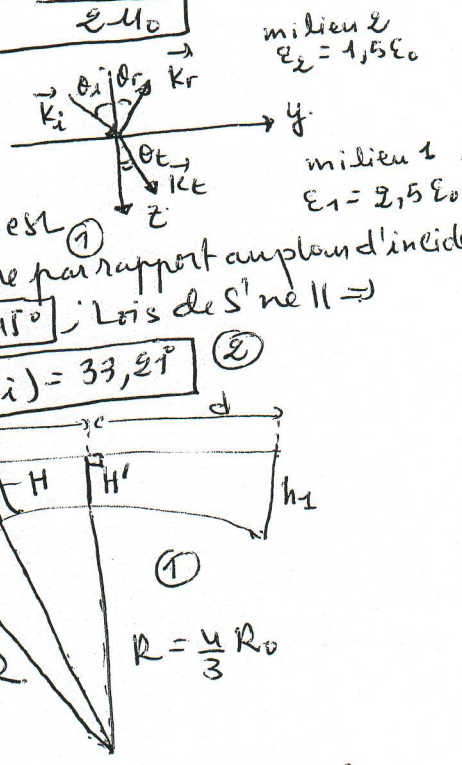 2μ₀
milieu 2
ε₂ = 1,5ε₀
θi θr Kr
Ki
y
θt
Kt
Z
milieu 1
ε1 = 2,5ε₀
est ①
par rapport au plan d'incide
45° ; Lois de S'nell ⇒
i) = 33,21° ②
d
H H' h1
①
R = 4/3 R₀